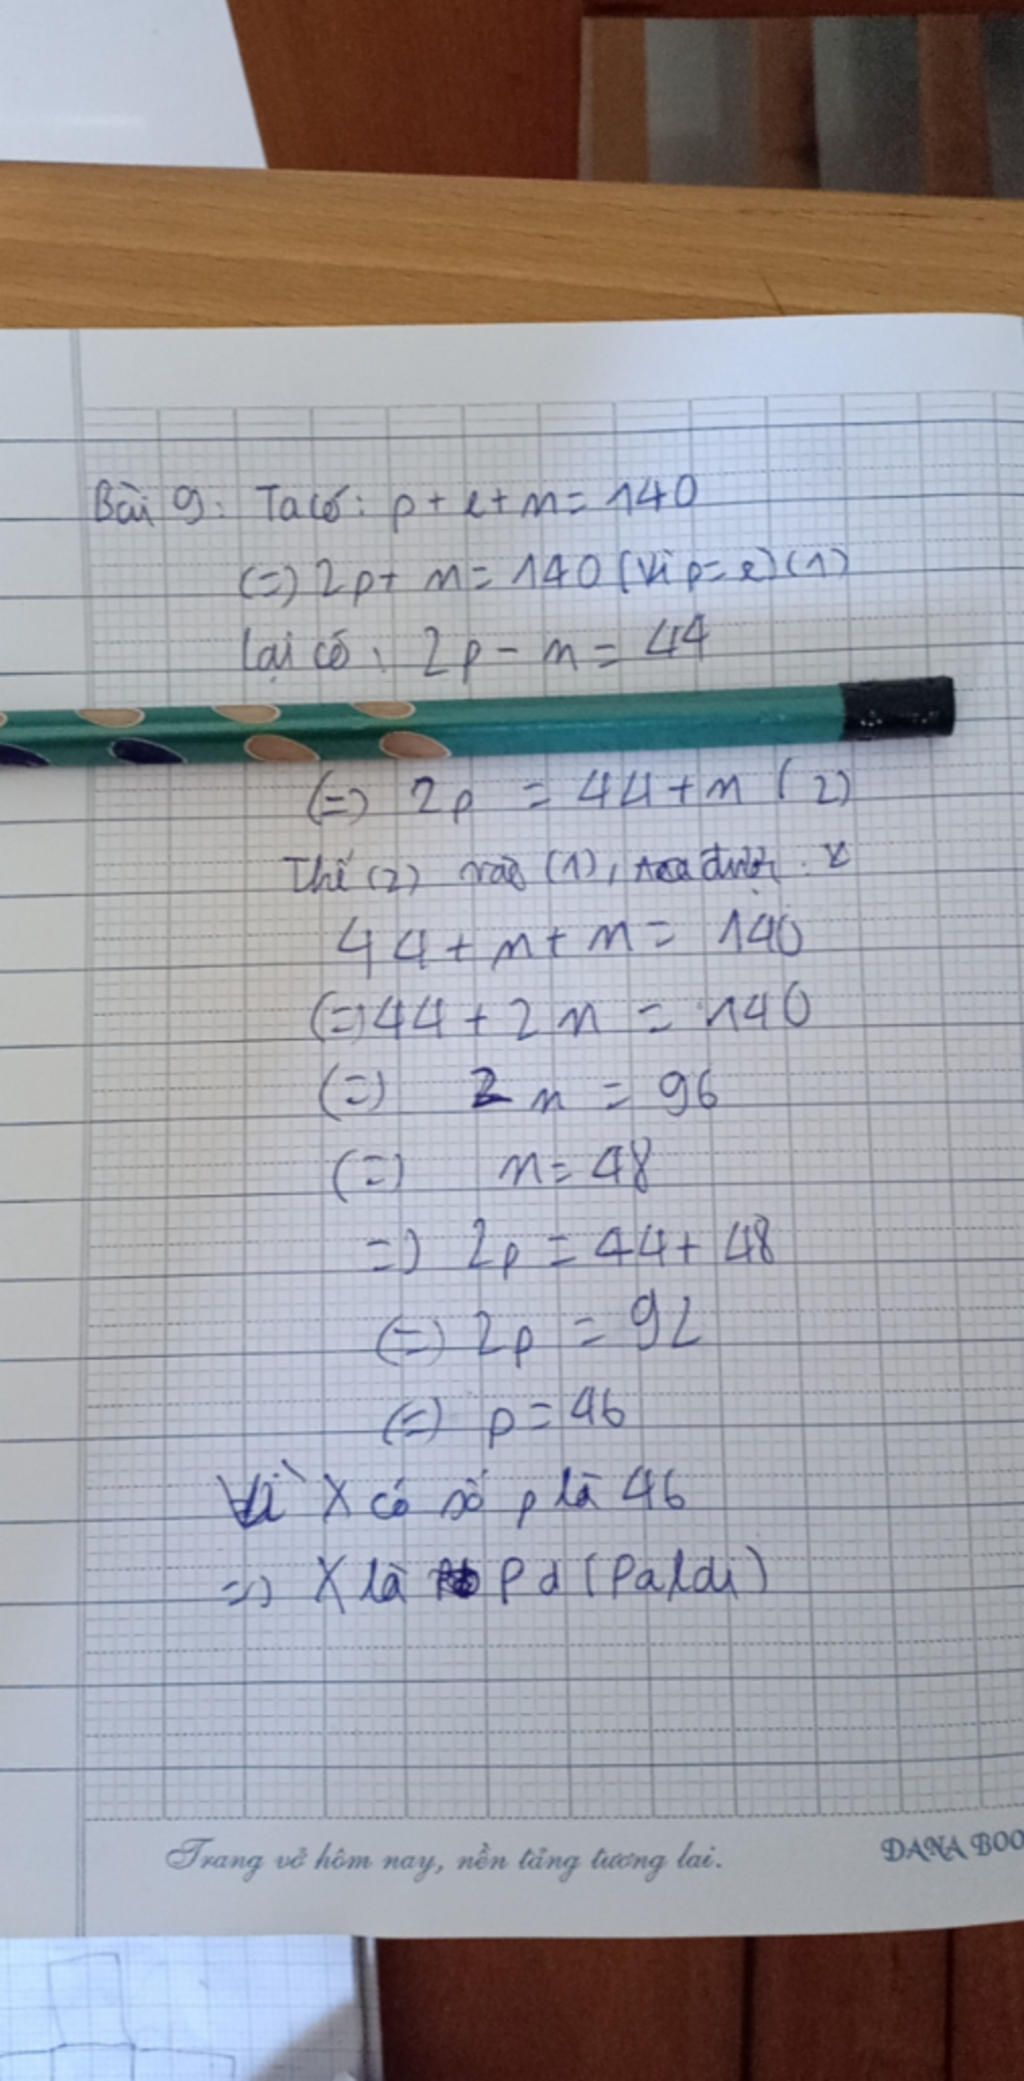 Bài 9: Ta có: p + e + n = 140
(=) 2p + n = 140 (Vì p = e) (1)
Lại có: 2p - n = 44
(=) 2p = 44 + n (2)
Thế (2) vào (1), được:
44 + n + n = 140
(=) 44 + 2n = 140
(=) 2n = 96
(=) n = 48
=) 2p = 44 + 48
(=) 2p = 92
(=) p = 46
Vì X có số p là 46
=) X là Pd (Paladi)
Trang vở hôm nay, nền tảng tương lai.
DANA BOO